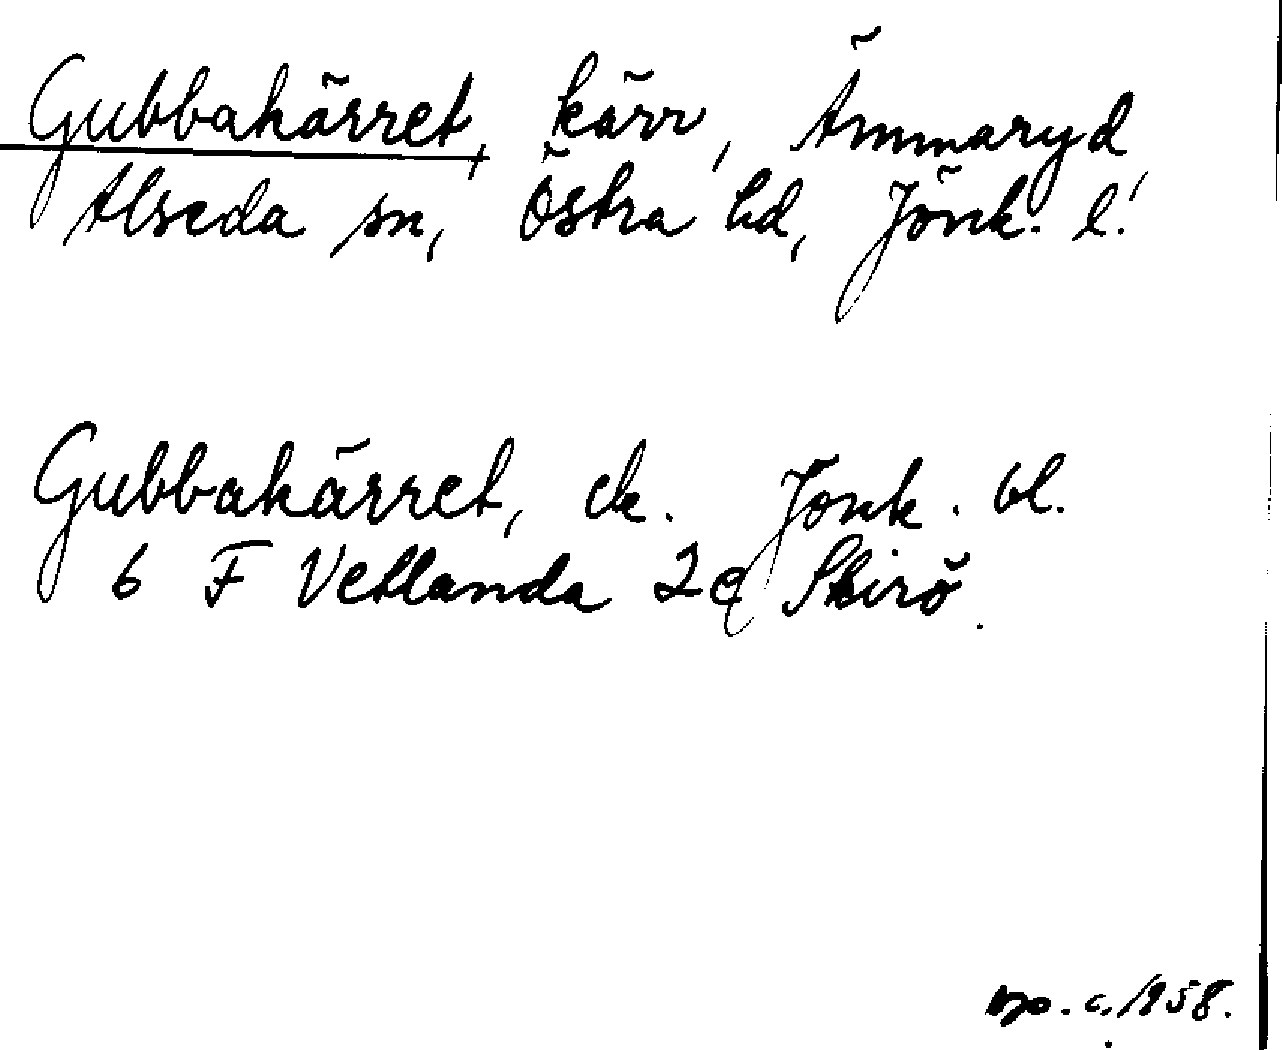 Gubbakärret, kärr, Ämmaryd,
Alseda sn, Östra hd, Jönk. l.
Gubbakärret, ek. Jönk. bl.
6 F Vetlanda 2e Skirö.
c. 1958.